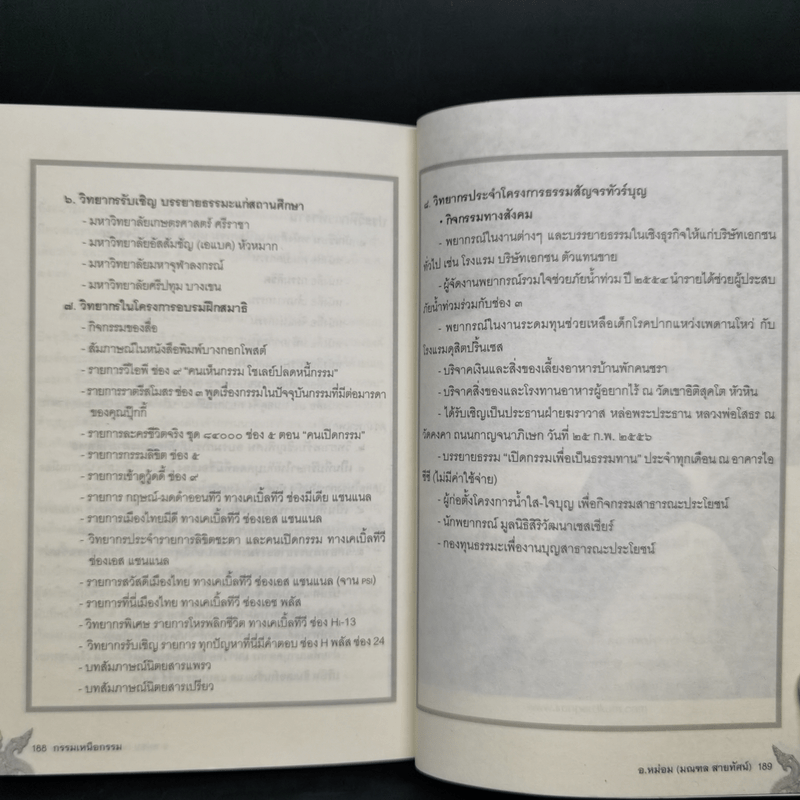 ๖. วิทยากรรับเชิญ บรรยายธรรมะแก่สถานศึกษา
- มหาวิทยาลัยเกษตรศาสตร์ ศรีราชา
- มหาวิทยาลัยอัสสัมชัญ (เอแบค) หัวหมาก
- มหาวิทยาลัยมหาจุฬาลงกรณ์
- มหาวิทยาลัยศรีปทุม บางเขน
๗. วิทยากรในโครงการอบรมฝึกสมาธิ
- กิจกรรมของสื่อ
- สัมภาษณ์ในหนังสือพิมพ์บางกอกโพสต์
- รายการวีไอพี ช่อง ๙ "คนเห็นกรรม โซเลย์ปลดหนี้กรรม"
- รายการราตรีสโมสร ช่อง ๓ พูดเรื่องกรรมในปัจจุบันกรรมที่มีต่อมารดา
ของคุณปุ๊กกี้
- รายการละครชีวิตจริง ชุด ๘๔๐๐๐ ช่อง ๕ ตอน "คนเปิดกรรม"
- รายการกรรมลิขิต ช่อง ๕
- รายการเช้าดูวู้ดดี้ ช่อง ๙
- รายการ กฤษณ์-มดดำออนทีวี ทางเคเบิ้ลทีวี ช่องมีเดีย แชนแนล
- รายการเมืองไทยมีดี ทางเคเบิ้ลทีวี ช่องเอส แชนแนล
- วิทยากรประจำรายการลิขิตชะตา และคนเปิดกรรม ทางเคเบิ้ลทีวี
ช่องเอส แชนแนล
- รายการสวัสดีเมืองไทย ทางเคเบิ้ลทีวี ช่องเอส แชนแนล (จาน PSI)
- รายการที่นี่เมืองไทย ทางเคเบิ้ลทีวี ช่องเอช พลัส
- วิทยากรพิเศษ รายการโหรพลิกชีวิต ทางเคเบิ้ลทีวี ช่อง Hi-13
- วิทยากรรับเชิญ รายการ ทุกปัญหาที่นี่มีคำตอบ ช่อง H พลัส ช่อง 24
- บทสัมภาษณ์นิตยสารแพรว
- บทสัมภาษณ์นิตยสารเปรียว
188 กรรมเหนือกรรม
๘. วิทยากรประจำโครงการธรรมสัญจรทัวร์บุญ
• กิจกรรมทางสังคม
- พยากรณ์ในงานต่างๆ และบรรยายธรรมในเชิงธุรกิจให้แก่บริษัทเอกชน
ทั่วไป เช่น โรงแรม บริษัทเอกชน ตัวแทนขาย
- ผู้จัดงานพยากรณ์รวมใจช่วยภัยน้ำท่วม ปี ๒๕๕๔ นำรายได้ช่วยผู้ประสบ
ภัยน้ำท่วมร่วมกับช่อง ๓
- พยากรณ์ในงานระดมทุนช่วยเหลือเด็กโรคปากแหว่งเพดานโหว่ กับ
โรงแรมดุสิตปริ้นเซส
- บริจาคเงินและสิ่งของเลี้ยงอาหารบ้านพักคนชรา
- บริจาคสิ่งของและโรงทานอาหารผู้อยากไร้ ณ วัดเขาอิติสุคโต หัวหิน
- ได้รับเชิญเป็นประธานฝ่ายฆราวาส หล่อพระประธาน หลวงพ่อโสธร ณ
วัดคงคา ถนนกาญจนาภิเษก วันที่ ๒๕ ก.พ. ๒๕๕๖
- บรรยายธรรม "เปิดกรรมเพื่อเป็นธรรมทาน" ประจำทุกเดือน ณ อาคารไอ
ริซี (ไม่มีค่าใช้จ่าย)
- ผู้ก่อตั้งโครงการน้ำใส-ใจบุญ เพื่อกิจกรรมสาธารณะประโยชน์
- นักพยากรณ์ มูลนิธิสิริวัฒนาเชสเชียร์
- กองทุนธรรมะเพื่องานบุญสาธารณะประโยชน์
อ.หม่อม (มณฑล สายทัศน์) 189